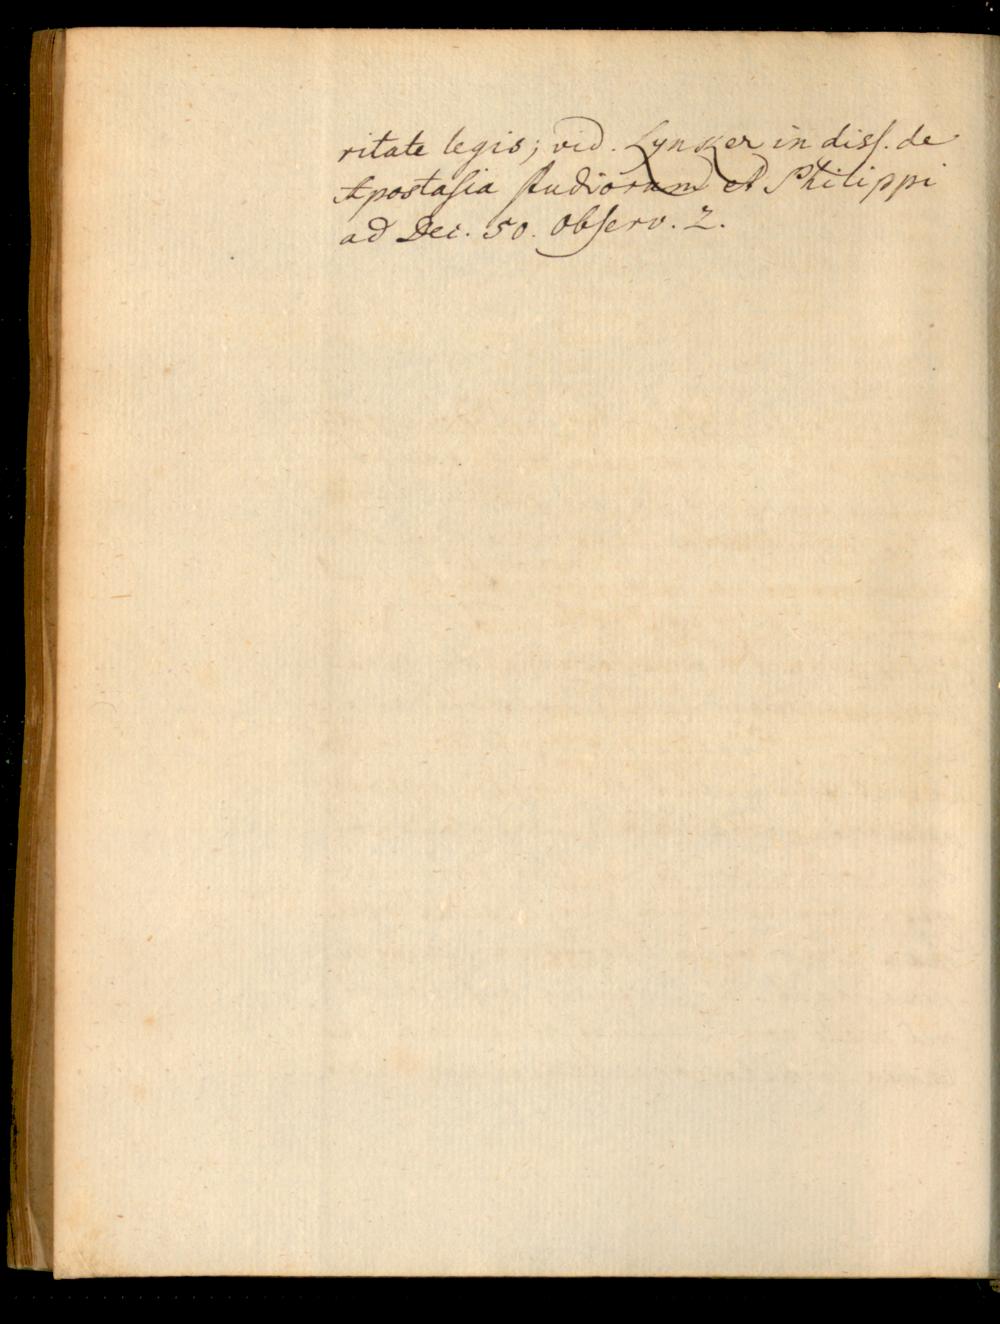 ritate legis; vid. Lynker in diss. de
Apostasia studiorum et Philippi
ad Dec. 50. Observ. 2.